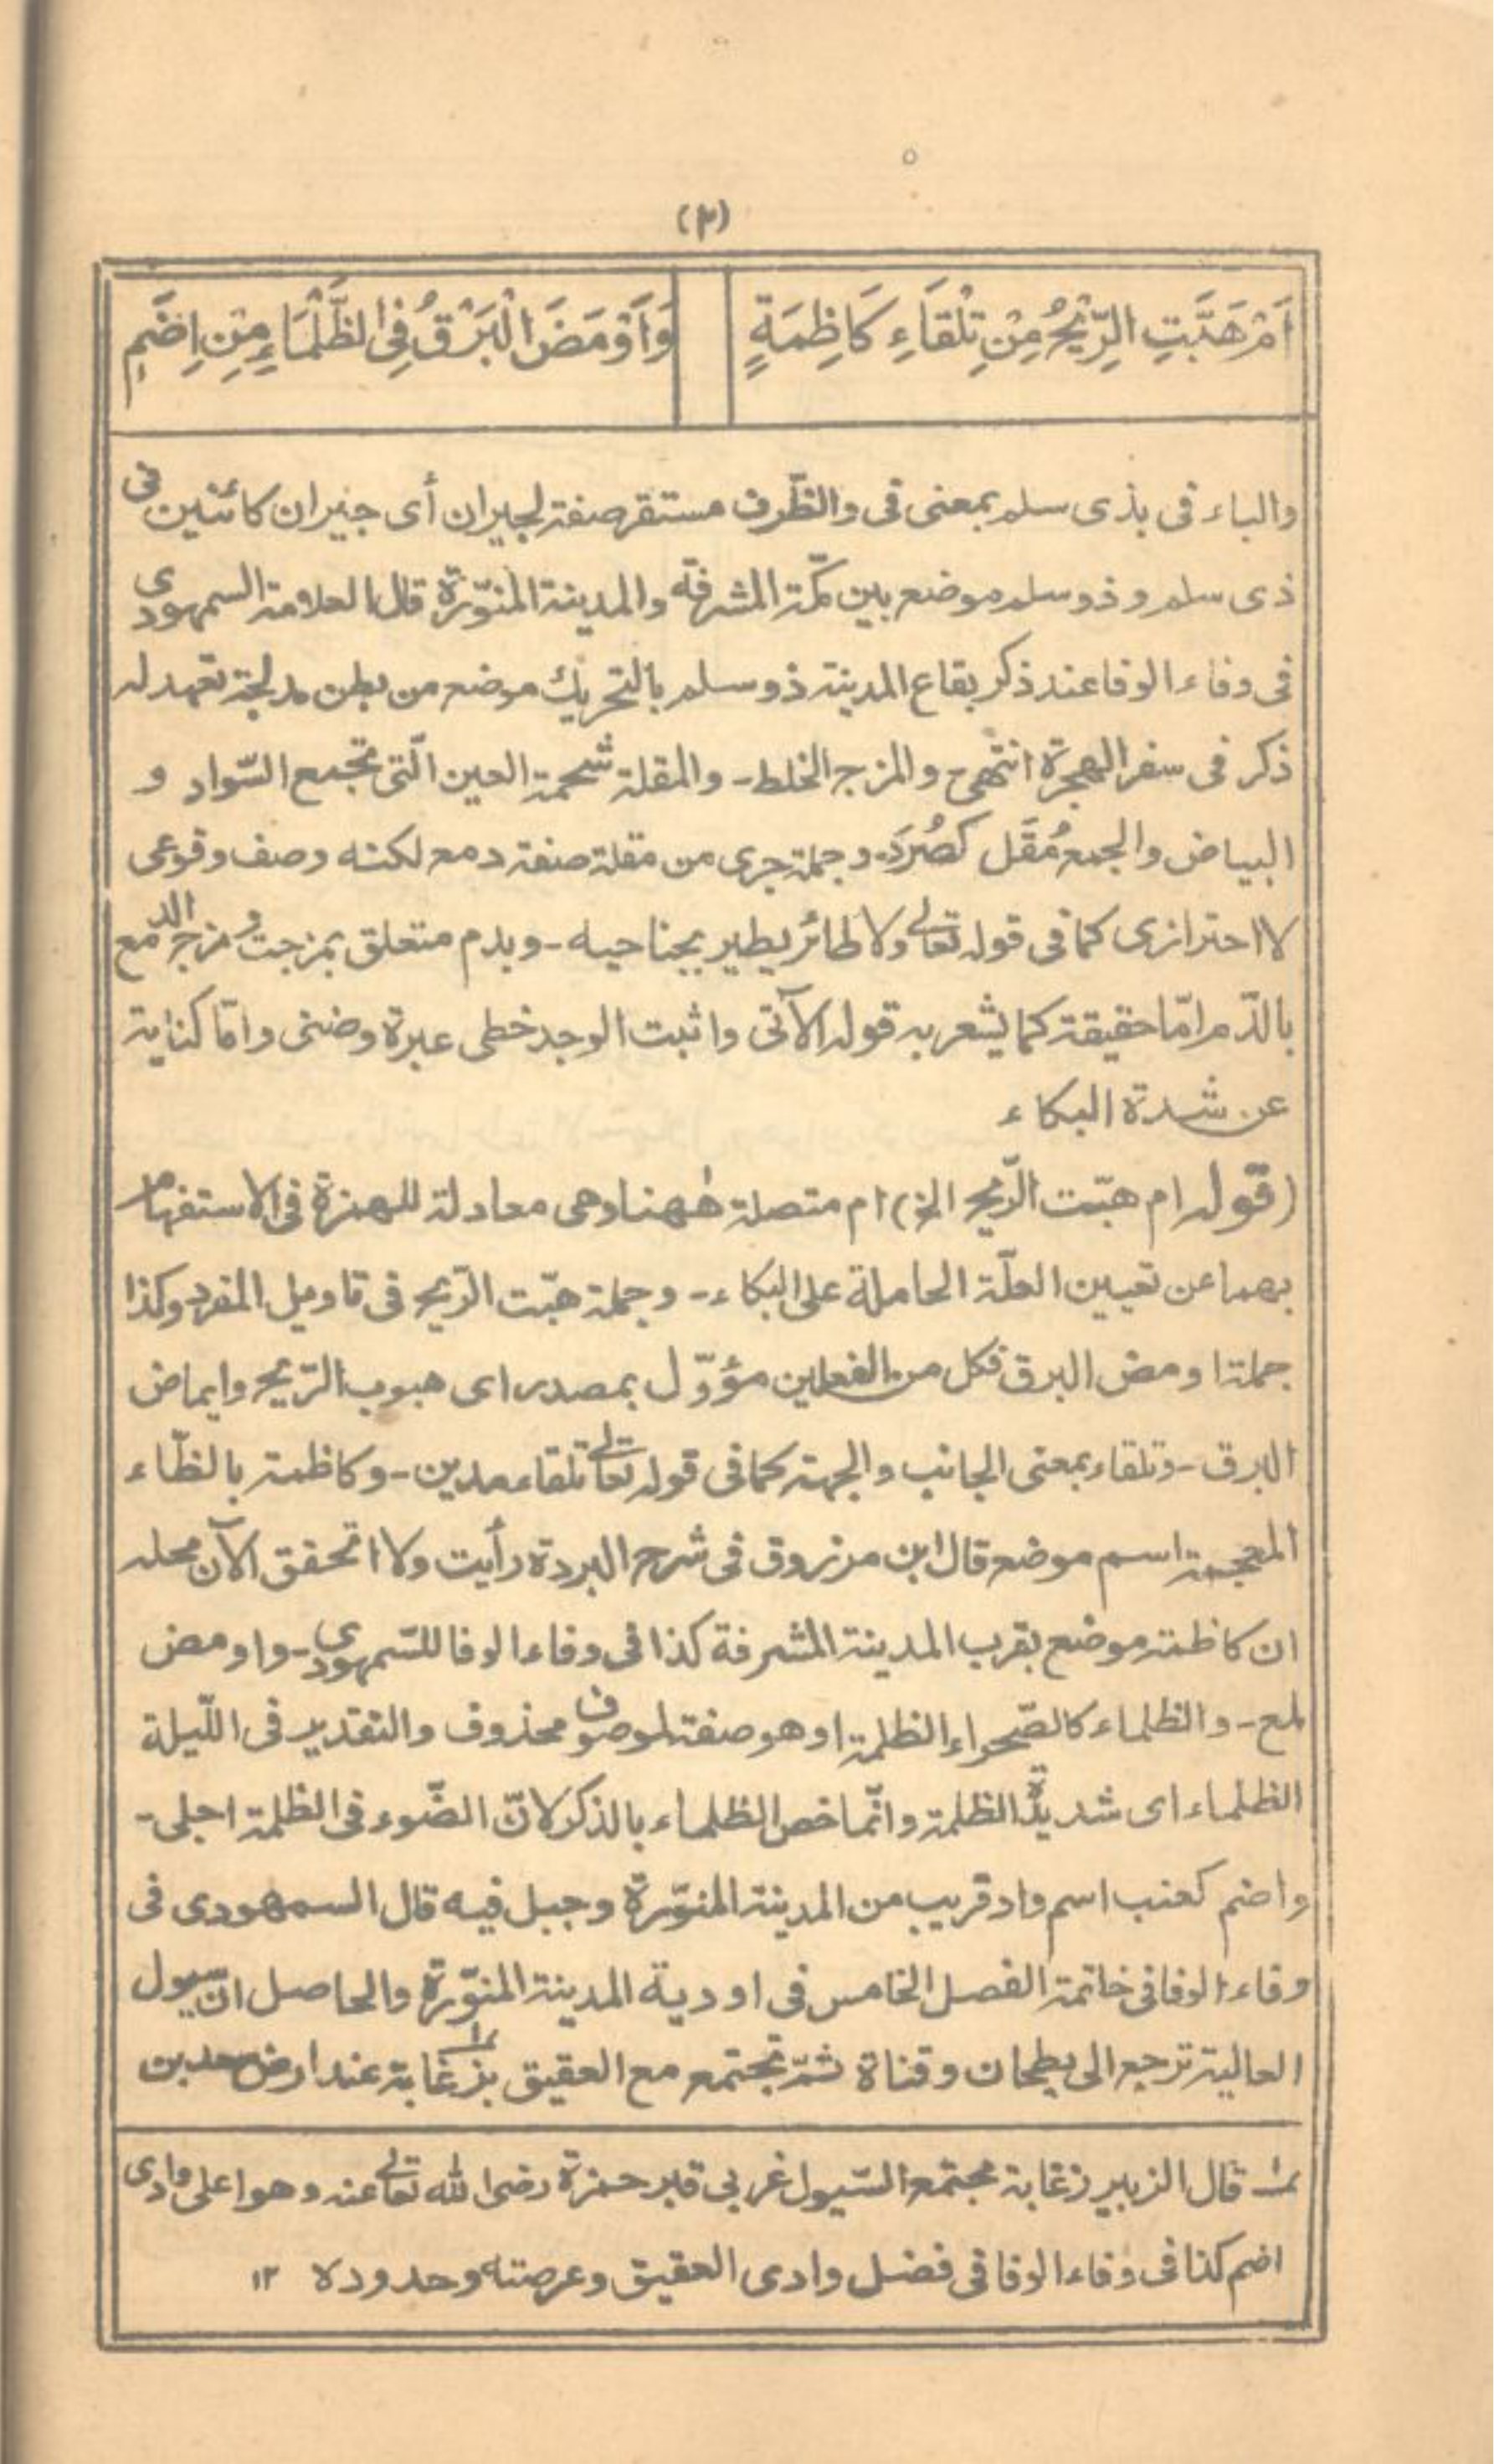 (٣)
اَمْ هَبَّتِ الرِّيْحُ مِنْ تِلْقَاءِ كَاظِمَةٍ
وَاَوْمَضَ الْبَرْقُ فِي الظَّلْمَاءِ مِنْ اِضَمِ
والباء فى بذى سلم بمعنى فى والظّرف مستقر صفة لجيران أى جيران كائنين فى
ذى سلم وذو سلم موضع بين مكّة المشرفة والمدينة المنوّرة قال العلامة السمهودى
فى وفاء الوفا عند ذكر بقاع المدينة ذو سلم بالتحريك موضع من بطن مدلجة تعهد له
ذكر فى سفر الهجرة انتهى والمزج الخلط ـ والمقلة شحمة العين الّتى تجمع السّواد و
البياض والجمع مُقَل كصُرَد ـ وجملة جرى من مقلة صفة دمع لكنه وصف وقوعى
لا احترازى كما فى قوله تعالى ولا طائر يطير بجناحيه ـ وبدم متعلق بمزجت ومزج الدمع
بالدّم امّا حقيقة كما يشعر به قوله الآتى واثبت الوجد خطى عبرة وضنى وامّا كناية
عن شدة البكاء
(قوله ام هبّت الرّيح الخ) ام متصلة ههنا وهى معادلة للهمزة فى الاستفهام
بهما عن تعيين العلّة الحاملة على البكاء ـ وجملة هبّت الرّيح فى تاويل المفرد وكذا
جملة اومض البرق فكل من الفعلين مؤوّل بمصدر اى هبوب الرّيح وايماض
البرق ـ وتلقاء بمعنى الجانب والجهة كما فى قوله تعالى تلقاء مدين ـ وكاظمة بالظّاء
المعجمة اسم موضع قال ابن مرزوق فى شرح البردة رأيت ولا اتحقق الآن محله
ان كاظمة موضع بقرب المدينة المشرفة كذا فى وفاء الوفا للسّمهودى ـ واومض
لمع ـ والظلماء كالصّحراء الظلمة او هو صفة لموصوف محذوف والتقدير فى اللّيلة
الظلماء اى شديدة الظلمة وانّما خص الظلماء بالذكر لانّ الضّوء فى الظلمة اجلى ـ
واضم كعنب اسم واد قريب من المدينة المنوّرة وجبل فيه قال السمهودى فى
وفاء الوفا فى خاتمة الفصل الخامس فى اودية المدينة المنوّرة والحاصل انّ سيول
العالية ترجع الى بطحان وقناة ثمّ تجتمع مع العقيق بزغابة عند ارض سعد بن
قال الزبير زغابة مجتمع السّيول غربى قبر حمزة رضى الله تعالى عنه وهو اعلى وادى
اضم كذا فى وفاء الوفا فى فضل وادى العقيق وعرصته وحدوده ١٢